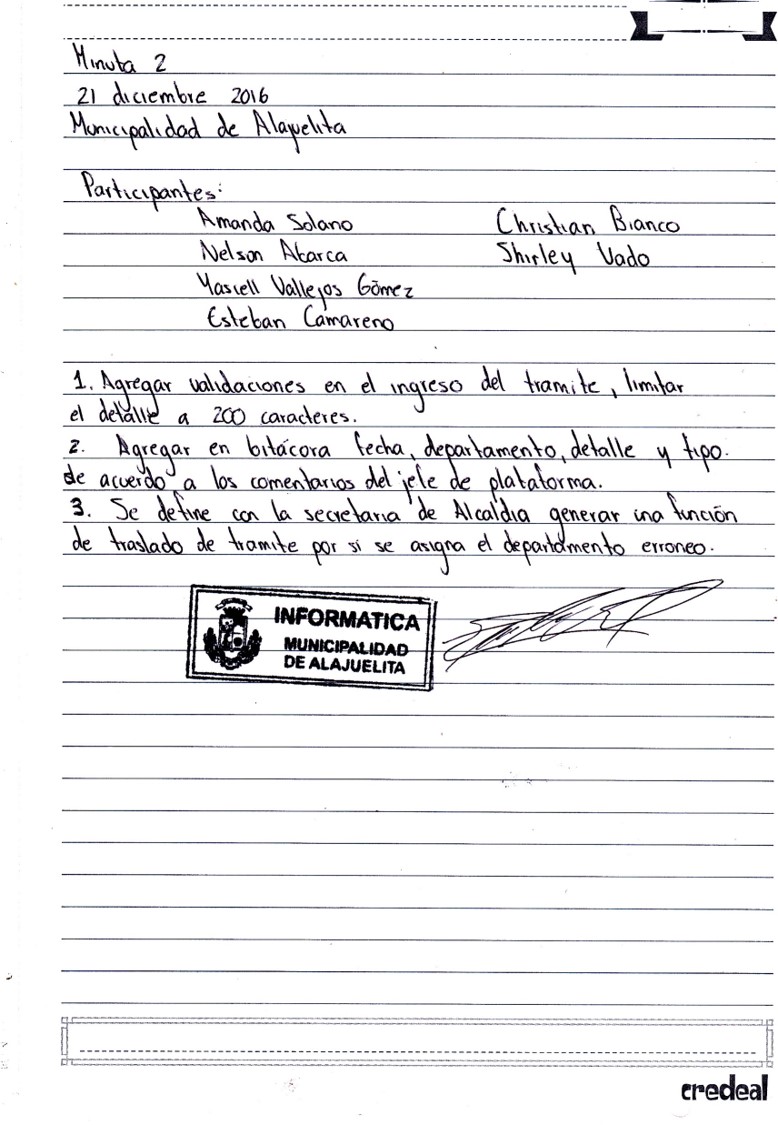 Minuta 2
21 diciembre 2016
Municipalidad de Alajuelita
Participantes:
Amanda Solano Christian Bianco
Nelson Abarca Shirley Vado
Yasiell Vallejos Gómez
Esteban Camareno
1. Agregar validaciones en el ingreso del tramite, limitar
el detalle a 200 caracteres.
2. Agregar en bitácora fecha, departamento, detalle y tipo.
de acuerdo a los comentarios del jefe de plataforma.
3. Se define con la secretaria de Alcaldía generar una función
de traslado de tramite por si se asigna el departamento erroneo.
INFORMATICA
MUNICIPALIDAD
DE ALAJUELITA
credeal